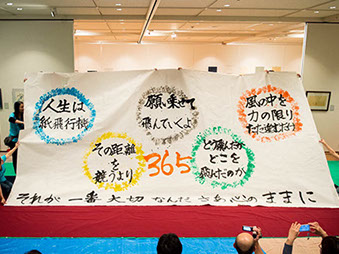 人生は
紙飛行機
願い乗せて
飛んでいくよ
風の中を
力の限り
ただ進むだけ
その距離
を
競うより
365
どう飛んだか
どこを
飛んだのか
それが一番大切なんださあ心のままに